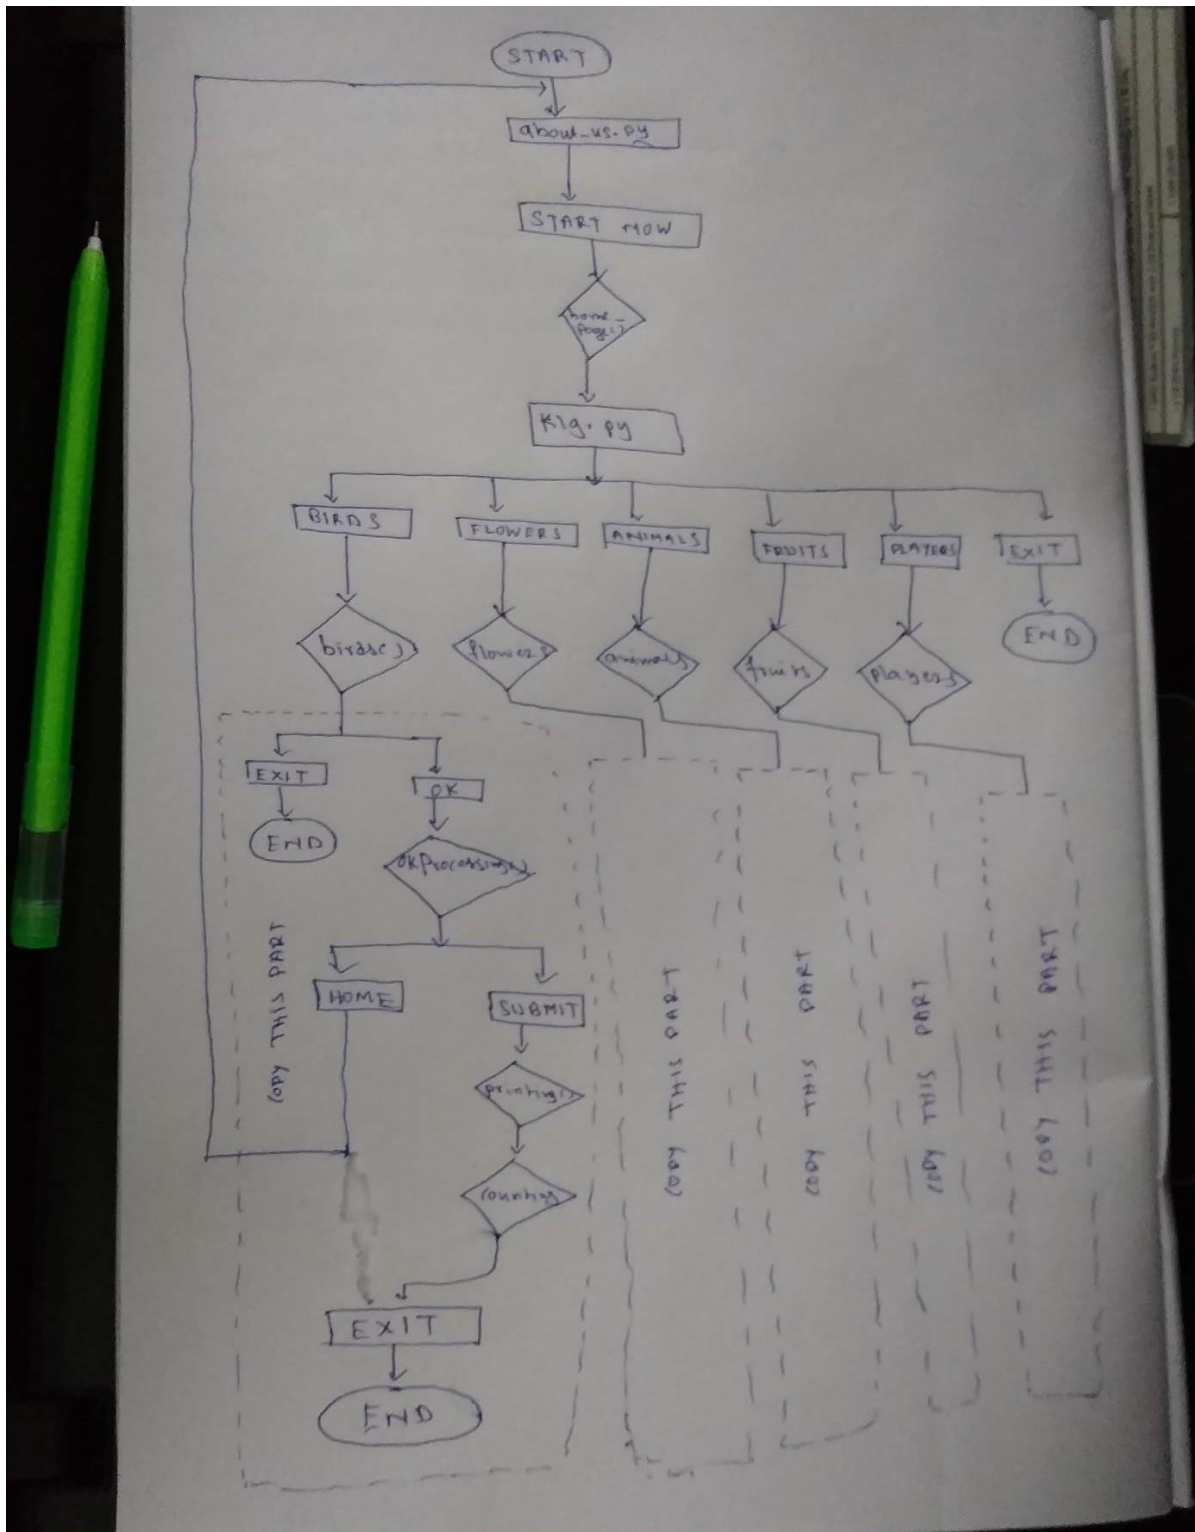 START
about_us.py
START NOW
home_
page()
Klg.py
BIRDS
FLOWERS
ANIMALS
FRUITS
PLAYERS
EXIT
birds()
flowers
animals
fruits
players
END
EXIT
OK
END
okProcessing()
HOME
SUBMIT
printing()
counting
EXIT
END
COPY THIS PART
COPY THIS PART
COPY THIS PART
COPY THIS PART
COPY THIS PART